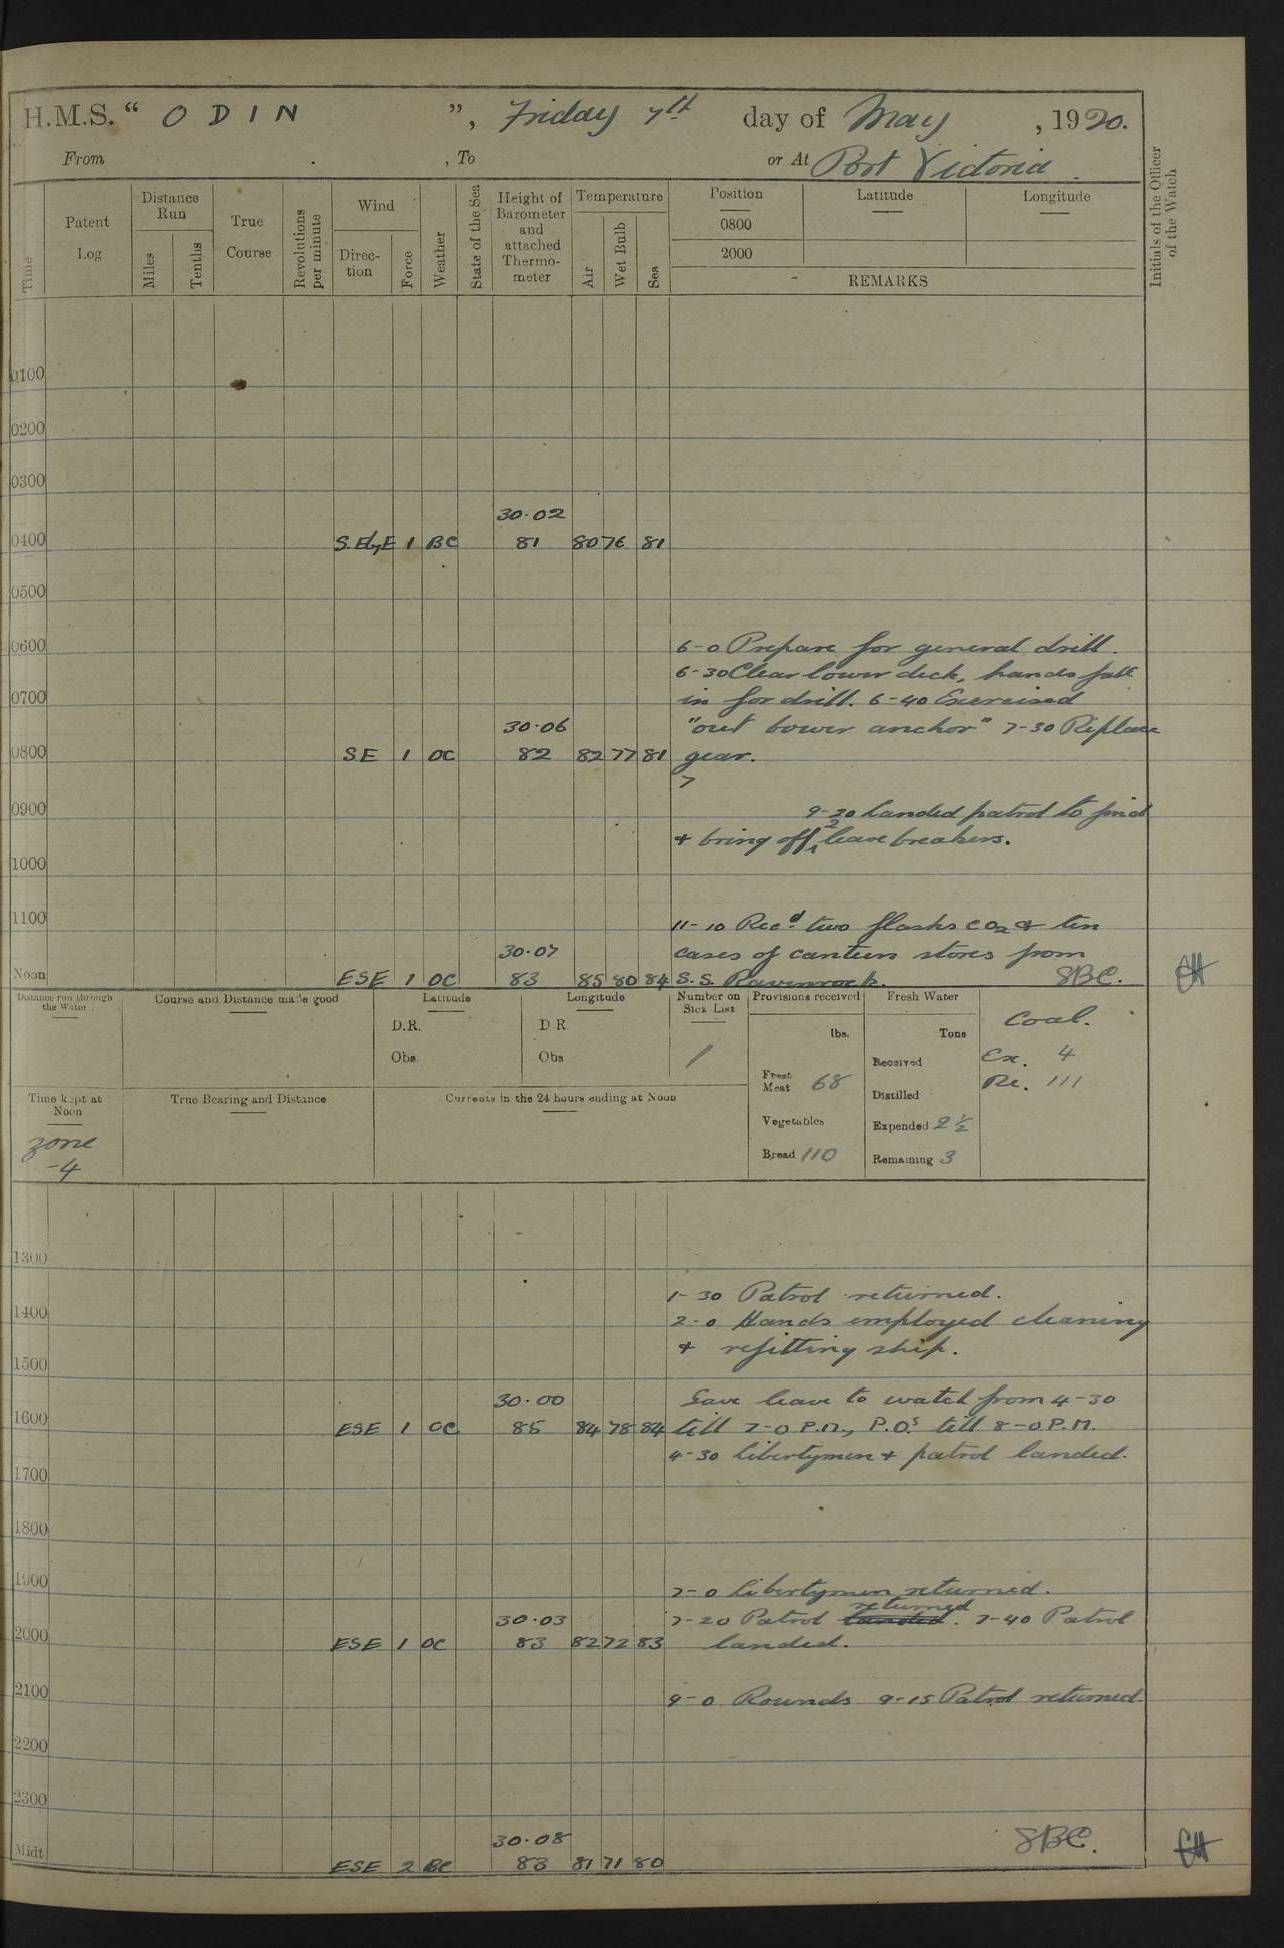 H.M.S. " ODIN ", Friday 7th day of May, 1920.
From , To or At Port Victoria.
Time
Patent Log
Distance Run
Miles
Tenths
True Course
Revolutions per minute
Wind
Direction
Force
Weather
State of the Sea
Height of Barometer and attached Thermometer
Temperature
Air
Wet Bulb
Sea
Position
Latitude
Longitude
0800
2000
REMARKS
Initials of the Officer of the Watch
0100
0200
0300
30.02
0400 S.EbyE 1 BC 81 80 76 81
0500
0600 6-0 Prepare for general drill.
6-30 Clear lower deck, hands fall
0700 in for drill. 6-40 Exercised
30.06 "out bower anchor" 7-30 Replace
0800 SE 1 OC 82 82 77 81 gear.
7
0900 9-20 Landed patrol to find
& bring off 2 leave breakers.
1000
1100 11-10 Recd. two flasks CO2 & ten
30.07 cases of canteen stores from
Noon ESE 1 OC 83 85 80 84 S.S. Ravenrock. SBC.
Distance run through the Water
Course and Distance made good
Latitude
D.R.
Obs.
Longitude
D R
Obs
Number on Sick List
1
Provisions received
lbs.
Fresh Meat 68
Vegetables
Bread 110
Fresh Water
Tons
Received
Distilled
Expended 2½
Remaining 3
Coal.
Ex. 4
Re. 111
Time kept at Noon
zone
-4
True Bearing and Distance
Currents in the 24 hours ending at Noon
1300
1-30 Patrol returned.
1400 2-0 Hands employed cleaning
& refitting ship.
1500
30.00 Gave leave to watch from 4-30
1600 ESE 1 OC 85 84 78 84 till 7-0 P.M., P.Os. till 8-0 P.M.
4-30 libertymen & patrol landed.
1700
1800
1900 7-0 libertymen returned.
30.03 7-20 Patrol landed returned. 7-40 Patrol
2000 ESE 1 OC 83 82 72 83 landed.
2100 9-0 Rounds 9-15 Patrol returned.
2200
2300
30.08 SBC.
Midt ESE 2 BC 83 81 71 80